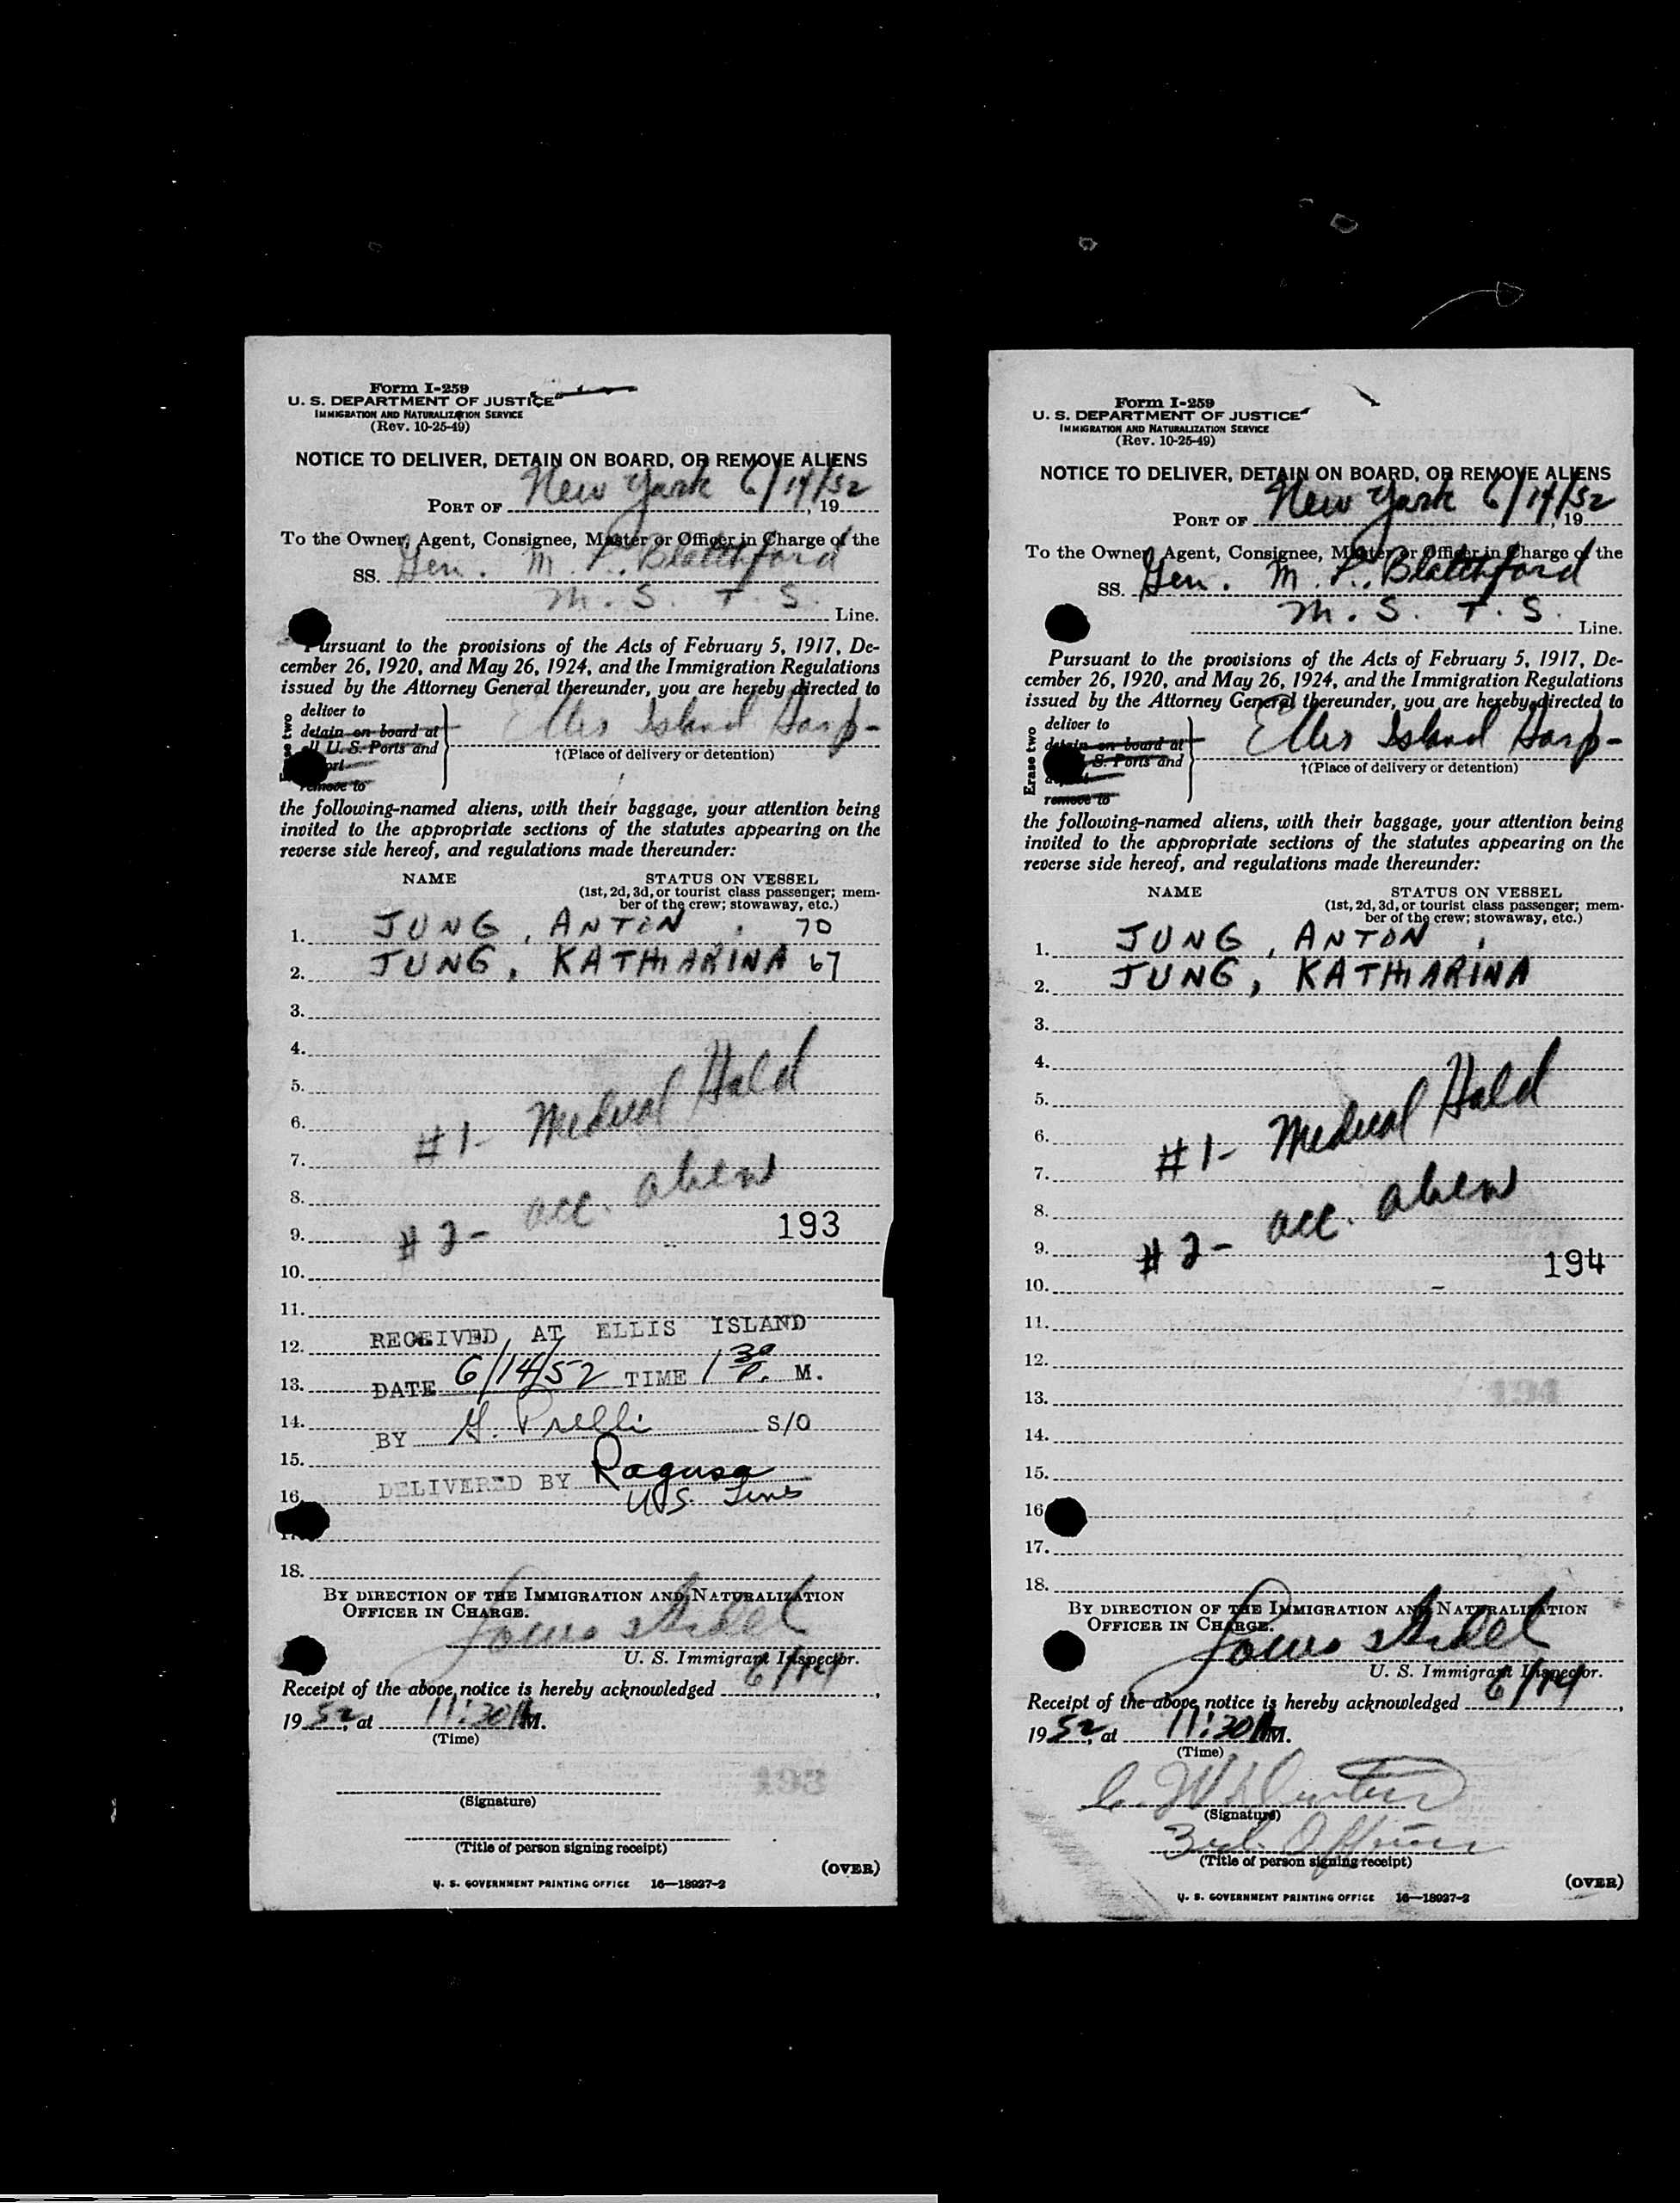 Form I-259
U. S. DEPARTMENT OF JUSTICE
IMMIGRATION AND NATURALIZATION SERVICE
(Rev. 10-25-49)
NOTICE TO DELIVER, DETAIN ON BOARD, OR REMOVE ALIENS
PORT OF New York 6/14/52, 19
To the Owner, Agent, Consignee, Master or Officer in Charge of the
SS. Gen. M. L. Blatchford
M. S. T. S. Line.
Pursuant to the provisions of the Acts of February 5, 1917, De-
cember 26, 1920, and May 26, 1924, and the Immigration Regulations
issued by the Attorney General thereunder, you are hereby directed to
deliver to
detain on board at
all U. S. Ports and
remove to
Ellis Island Hosp-
†(Place of delivery or detention)
the following-named aliens, with their baggage, your attention being
invited to the appropriate sections of the statutes appearing on the
reverse side hereof, and regulations made thereunder:
NAME STATUS ON VESSEL
(1st, 2d, 3d, or tourist class passenger; mem-
ber of the crew; stowaway, etc.)
1. JUNG, ANTON 70
2. JUNG, KATHARINA 67
3.
4.
5.
6.
#1- Medical Hold
7.
8.
9.
#2- acc. alien
193
10.
11.
RECEIVED AT ELLIS ISLAND
12.
DATE 6/14/52 TIME 1 30 P. M.
13.
14.
BY G. Prelli S/O
15.
DELIVERED BY Ragusa
16.
U.S. Lines
18.
BY DIRECTION OF THE IMMIGRATION AND NATURALIZATION
OFFICER IN CHARGE.
Louis
U. S. Immigrant Inspector.
Receipt of the above notice is hereby acknowledged 6/14,
1952, at 11:30 AM.
(Time)
193
(Signature)
(Title of person signing receipt)
(OVER)
U. S. GOVERNMENT PRINTING OFFICE 16—18937-2
Form I-259
U. S. DEPARTMENT OF JUSTICE
IMMIGRATION AND NATURALIZATION SERVICE
(Rev. 10-25-49)
NOTICE TO DELIVER, DETAIN ON BOARD, OR REMOVE ALIENS
PORT OF New York 6/14/52, 19
To the Owner, Agent, Consignee, Master or Officer in Charge of the
SS. Gen. M. L. Blatchford
M. S. T. S. Line.
Pursuant to the provisions of the Acts of February 5, 1917, De-
cember 26, 1920, and May 26, 1924, and the Immigration Regulations
issued by the Attorney General thereunder, you are hereby directed to
Erase two
deliver to
detain on board at
S. Ports and
remove to
Ellis Island Hosp-
†(Place of delivery or detention)
the following-named aliens, with their baggage, your attention being
invited to the appropriate sections of the statutes appearing on the
reverse side hereof, and regulations made thereunder:
NAME STATUS ON VESSEL
(1st, 2d, 3d, or tourist class passenger; mem-
ber of the crew; stowaway, etc.)
1. JUNG, ANTON
2. JUNG, KATHARINA
3.
4.
5.
6.
#1- Medical Hold
7.
8.
9.
#2- acc. alien
194
10.
11.
12.
13.
194
14.
15.
16.
17.
18.
BY DIRECTION OF THE IMMIGRATION AND NATURALIZATION
OFFICER IN CHARGE.
Louis
U. S. Immigrant Inspector.
Receipt of the above notice is hereby acknowledged 6/14,
1952, at 11:30 AM.
(Time)
(Signature)
3rd. Officer
(Title of person signing receipt)
(OVER)
U. S. GOVERNMENT PRINTING OFFICE 16—18937-2